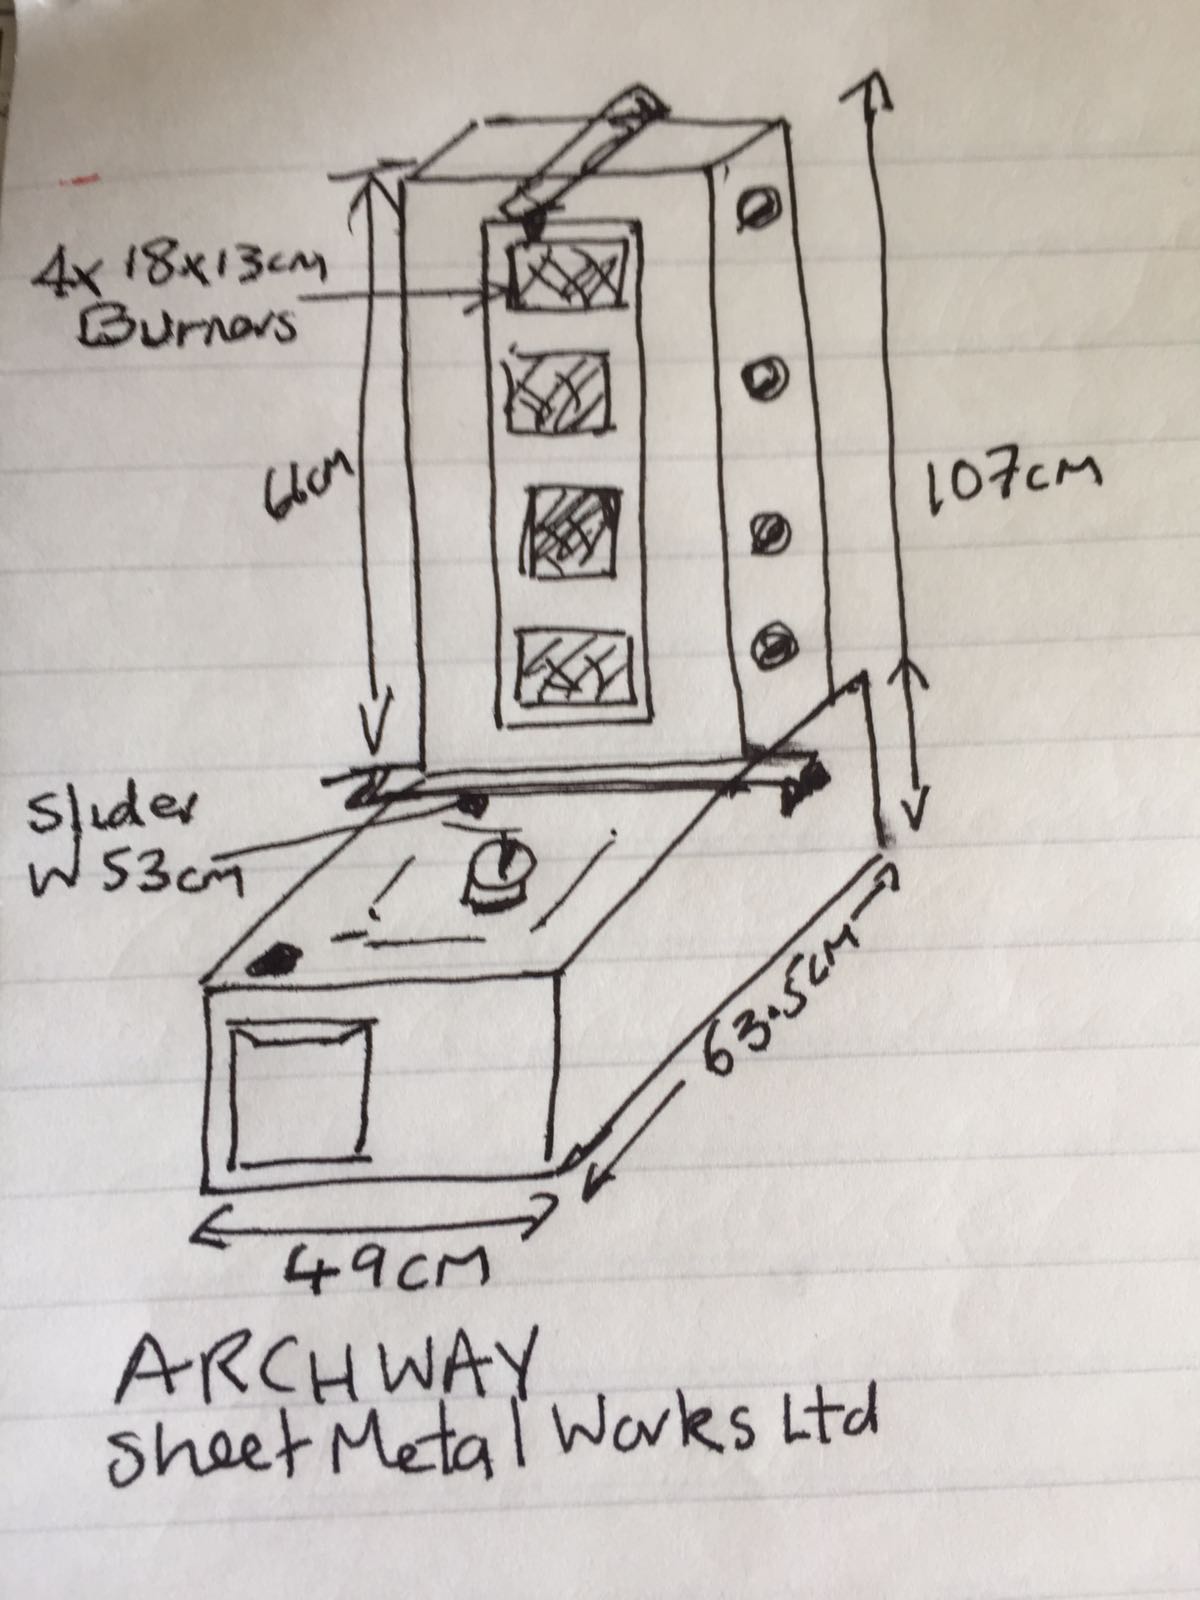 4x 18x13cm
Burners
66cm
107cm
Slider
W 53cm
63.5cm
49CM
ARCHWAY
Sheet Metal Works Ltd